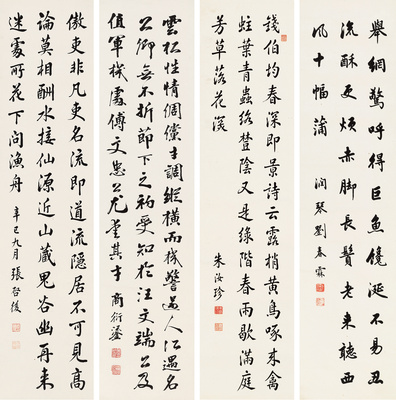 舉網驚呼得巨魚饞涎不易丑
流酥更煩赤腳長鬚老來聽西
風十幅蒲
潤琴劉春霖
錢伯均春深即景詩云露梢黃鳥啄來禽
蛀葉青蟲絡莖陰又是綠階春雨歇滿庭
芳草落花深
朱汝珍
雲松性情倜儻才調縱橫而機警過人江遇名
公卿無不折節下之初受知於汪文端公及
值軍機處傅文忠公尤重其才
商衍鎏
傲吏非凡吏名流即道流隱居不可見高
論莫相酬水接仙源近山藏鬼谷幽再來
迷處所花下問漁舟
辛巳九月張啓後